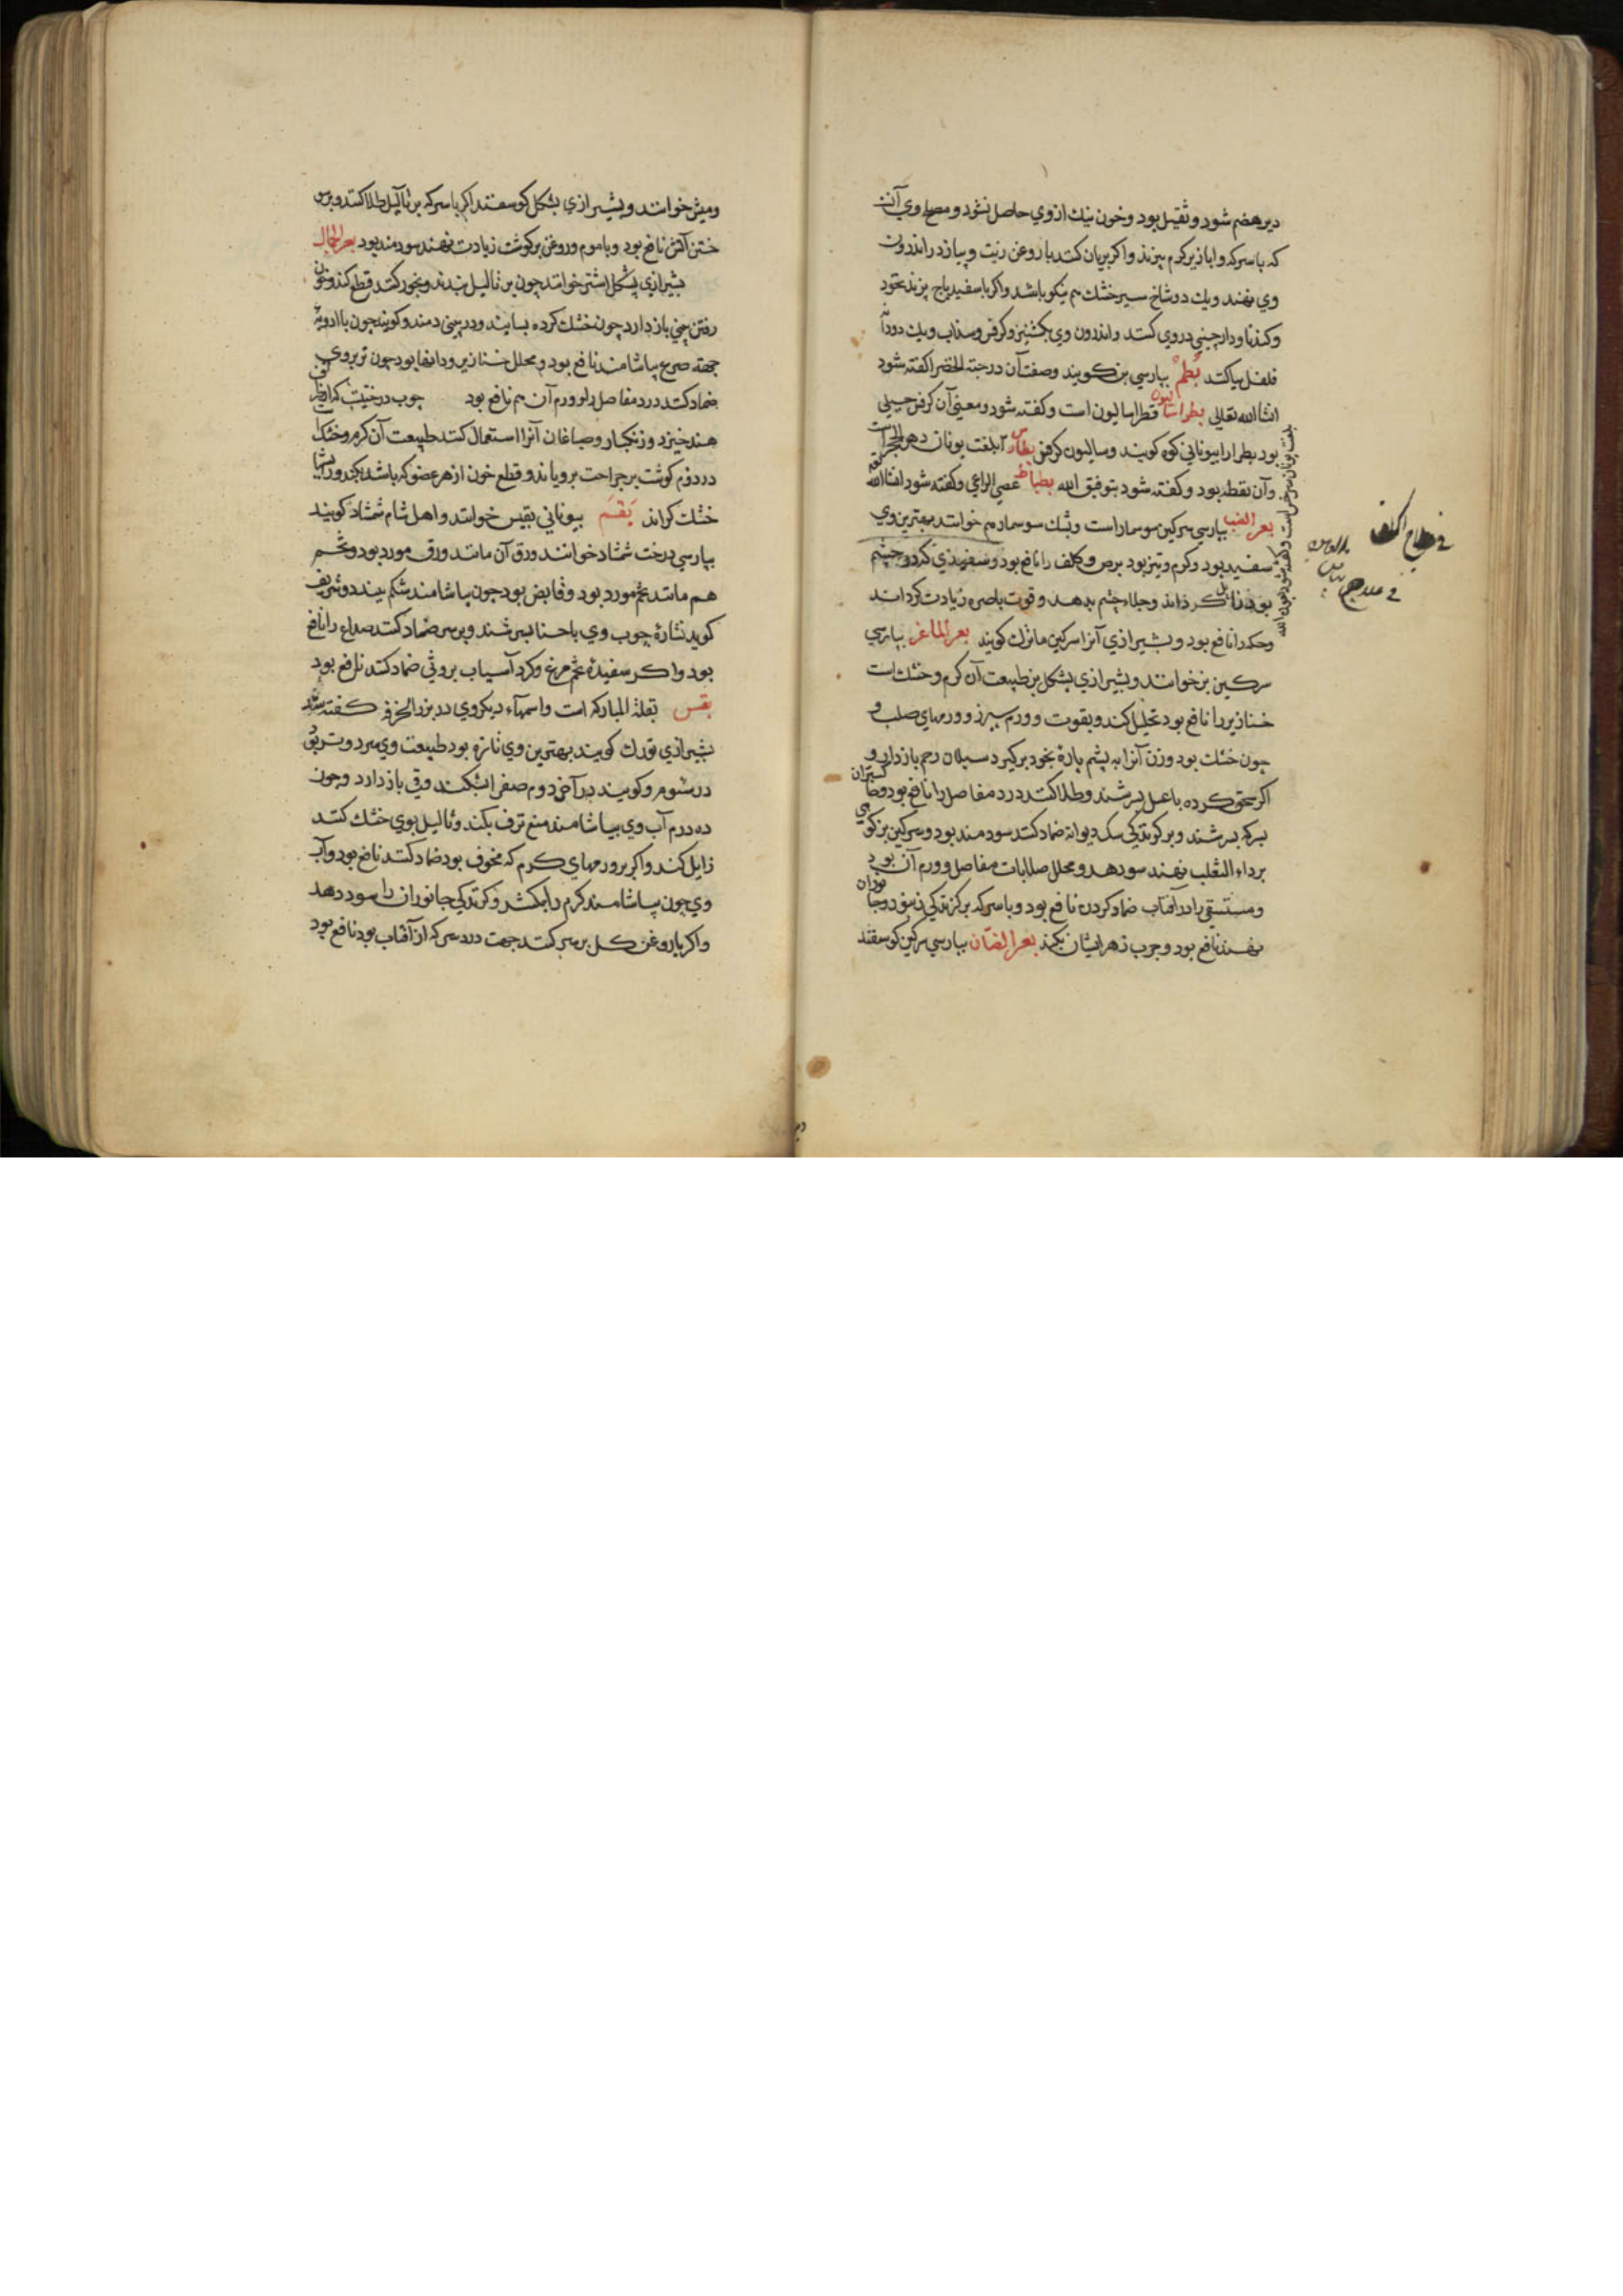 دیر هضم شود و ثقیل بود و خون نیك از وی حاصل نشود و مصلح وی آنـ
که با سرکه و ابازیر کرم بپزند و اکر بریان کنند با روغن زیت و پیاز در اندرون
وی نهند و یك دو شاخ سیر خشك هم نیکو باشد و اکر با سفیدباج پزند نخود
و کندنا و دارچینی در وی کنند و اندرون وی بکشنیز و کرفس و سداب و یك دو دانه
فلفل پیاکنند بُطم بپارسی بن کویند و صفت آن در حبة الخضرا کفته شود
انشاالله تعالی بطراسالیون قطراسالیون است و کفته شود و معنی آن کرفس جبلی
بود بطرا را بیونانی کوه کویند و سالیون کرفس بطارس بلغت یونان دهن الحجر است
وآن نفط بود و کفته شود بتوفیق الله بطباط عصی الراعی و کفته شود انشاالله
بعر الضب بپارسی سرکین سوسمار است و پشك سوسمار هم خوانند بهترین وی
سفید بود و کرم و تیز بود برص و کلف را نافع بود و سفیدی که در چشم
بود زایل کرداند و جلاء چشم بدهد و قوت باصره زیادت کرداند
وحکه را نافع بود و بشیرازی آنرا سرکین مانرك کویند بعر الماعز بپارسی
سرکین بز خوانند و بشیرازی پشکل بز طبیعت آن کرم و خشك است
خنازیر را نافع بود تحلیل کند و بقوت و ورم سپرز و ورمهای صلب و
چون خشك بود وزن آنرا به پشم پارۀ بخود برکیرد سیلان رحم باز دارد و
اکر سحق کرده با عسل بسرشند و طلا کنند درد مفاصل را نافع بود و جا کستر آن
بسرکه بسرشند و بر کزندکی سك دیوانه ضماد کنند سودمند بود و سرکین بز کوهی
بر داء الثعلب نهند سود دهد و محلل صلابات مفاصل و ورم آن بود
و مستسقی را در آفتاب ضماد کردن نافع بود و با سرکه بر کزندکی زنبور و جانوران
نهند نافع بود و جرب زهر ایشان بکند بعر الضأن بپارسی سرکین کوسفند
ومیش خوانند و بشیرازی پشکل کوسفند اکر با سرکه بر ثآلیل طلا کنند و بر سو
ختن آتش نافع بود و با موم و روغن بر کوشت زیادت نهند سودمند بود بعر الجمال
بشیرازی پشکل اشتر خوانند چون بر ثالیل بندند و بخور کنند قطع کند و خون
رفتن بینی باز دارد چون خشك کرده بسایند و در بینی دمند و کویند چون با ادویۀ
جهة صرع بیاشامند نافع بود و محلل خنازیر و دانها بود چون تر بر وی
ضماد کنند درد مفاصل را و ورم آن هم نافع بود چوب درختیست که از طرف
هند خیزد و زنکبار و صباغان آنرا استعمال کنند طبیعت آن کرم و خشك
در دوم کوشت بر جراحت برویاند و قطع خون از هر عضو که باشد بکند و ریشها
خشك کرداند بَقسَم بیونانی بقیس خوانند و اهل شام شمشاد کویند
بپارسی درخت شمشاد خوانند ورق آن مانند ورق مورد بود و تخم
هم مانند تخم مورد بود و قابض بود چون بیاشامند شکم ببندد و شریف
کوید نشارۀ چوب وی با حنا بسرشند و بر سر ضماد کنند صداع را نافع
بود و اکر سفیدۀ تخم مرغ و کرد آسیاب بر وثی ضماد کنند نافع بود
بقس بقلة المبارکه است و اسمهآء دیکر وی در بزر الخرفه کفته شد
بشیرازی تورك کویند بهترین وی تازه بود طبیعت وی سرد و تر بود
در سوم و کویند در آخر دوم صفرا بشکند و قی باز دارد و چون
ده درم آب وی بیاشامند منع نزف بکند و ثالیل بوی خشك کنند
زایل کند و اکر بر ورمهای کرم که مخوف بود ضماد کنند نافع بود و آب
وی چون بیاشامند کرم را بکشد و کزندکی جانوران را سود دهد
واکر با روغن کل بر سر کنند جهت درد سر که از آفتاب بود نافع بود